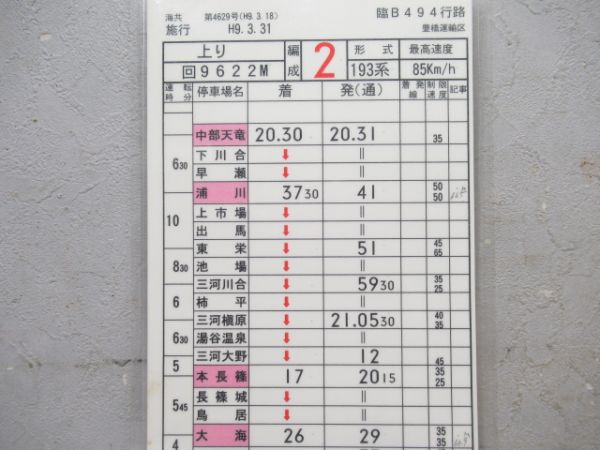 海共 第4629号(H9.3.18) 臨B494行路
施行 H9.3.31 豊橋運輸区
上り 編成 2 形式 最高速度
回9622M 193系 85Km/h
運転時分 停車場名 着 発(通) 着発線 制限速度 記事
中部天竜 20.30 20.31 35
630 下川合 ↓ ॥
早瀬 ↓ ॥
浦川 3730 41 50 50
10 上市場 ↓ ॥
出馬 ↓ ॥
東栄 ↓ 51 45 65
830 池場 ↓ ॥
三河川合 ↓ 5930
6 柿平 ↓ ॥
三河槇原 ↓ 21.0530 40 35
630 湯谷温泉 ↓ ॥
三河大野 ↓ 12 45
5 本長篠 17 2015 35 25
545 長篠城 ↓ ॥
鳥居 ↓ ॥
大海 26 29 35 35
4